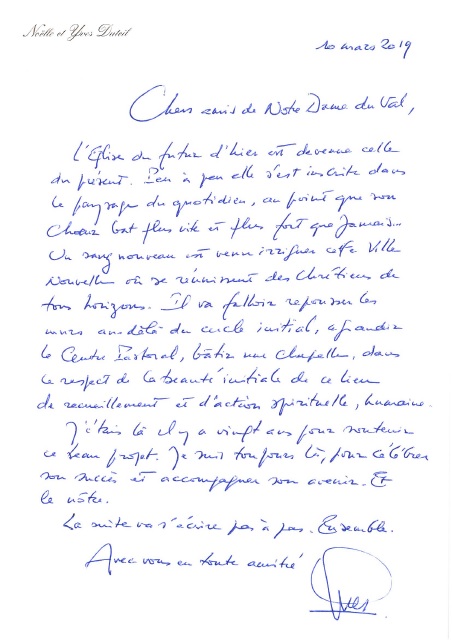 Noëlle et Yves Duteil
10 mars 2019
Chers amis de Notre Dame du Val,
L'Eglise du futur d'hier est devenue celle
du présent. Peu à peu elle s'est inscrite dans
le paysage du quotidien, au point que son
Choeur bat plus vite et plus fort que jamais...
Un sang nouveau est venu irriguer cette Ville
Nouvelle où se réunissent des Chrétiens de
tous horizons. Il va falloir repousser les
murs au-delà du cercle initial, agrandir
le Centre Pastoral, bâtir une Chapelle, dans
le respect de la beauté initiale de ce lieu
de recueillement et d'action spirituelle, humaine.
J'étais là il y a vingt ans pour soutenir
ce beau projet. Je suis toujours là, pour célébrer
son succès et accompagner son avenir. Et
le nôtre.
La suite va s'écrire pas à pas. Ensemble.
Avec vous en toute amitié
Yves